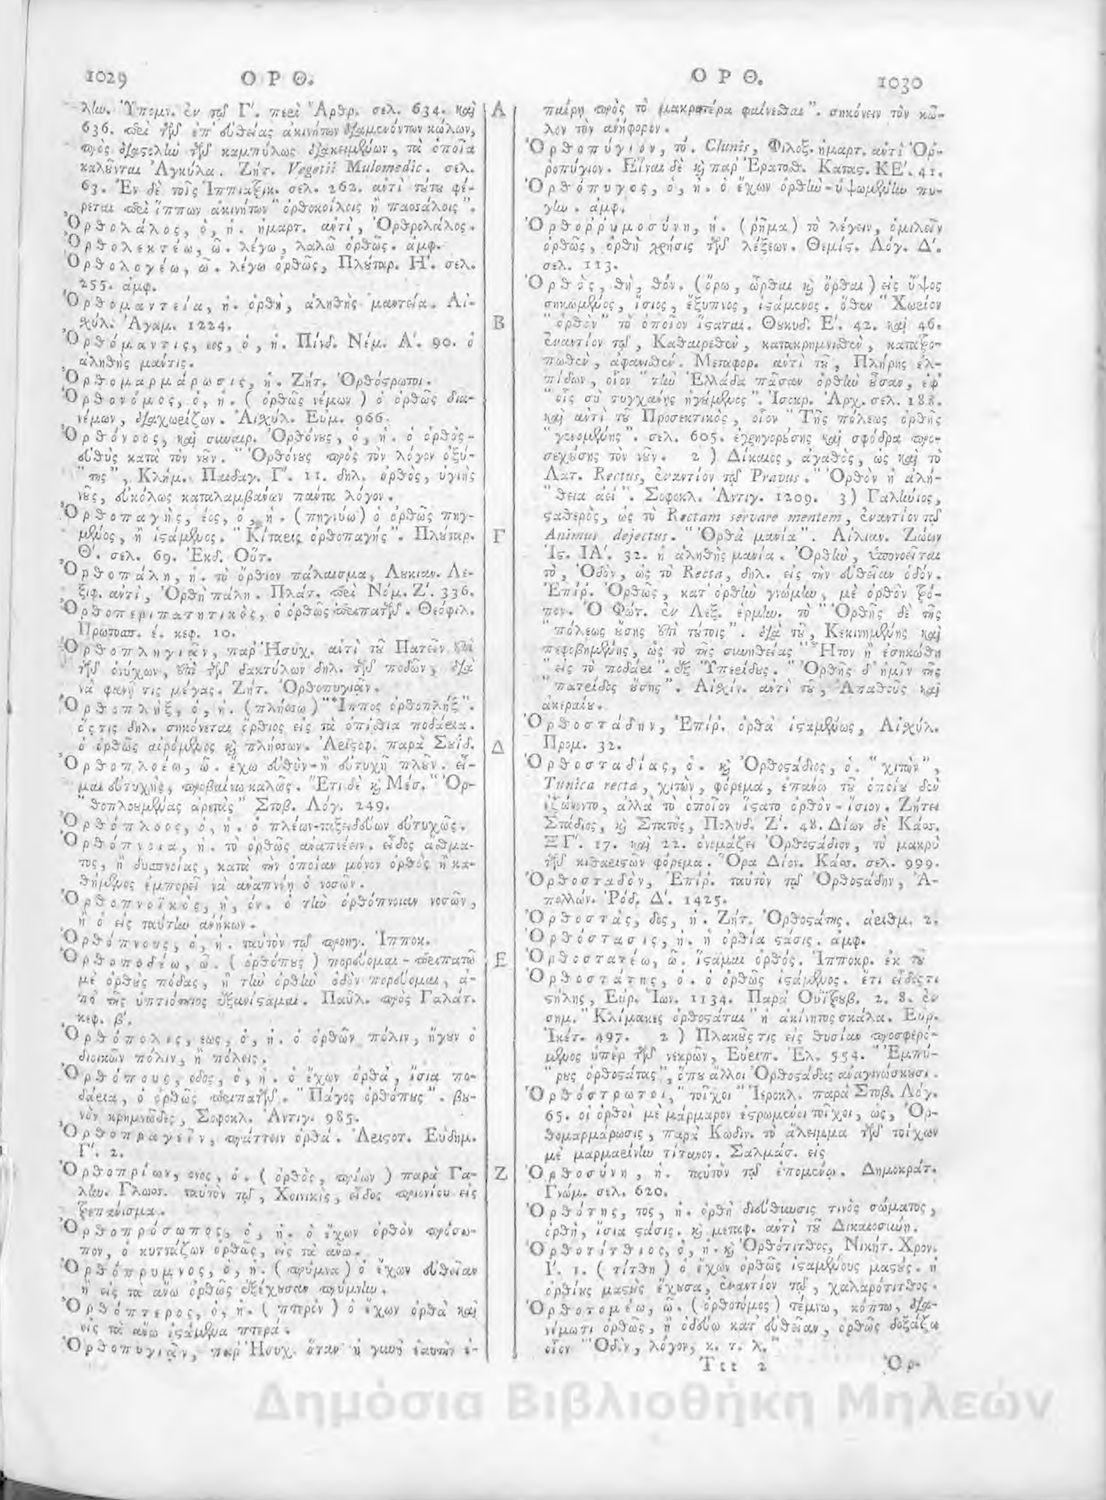 1029 ΟΡΘ.
λίω. Ὑπομν. ἐν τῷ Γ΄. περὶ Ἄρθρ. σελ. 634. καὶ
636. περὶ τῶν ἐπ' εὐθείας ἀκινήτων διαμενόντων κώλων,
πρὸς διαστολὴν τῶν καμπύλως διακειμένων, τὰ ὁποῖα
καλοῦνται Ἀγκύλα. Ζήτ. Vegetii Mulomedic. σελ.
63. Ἐν δὲ τοῖς Ἱππιατρικ. σελ. 262. ἀντὶ τούτου φέ-
ρεται περὶ ἵππων ἀκινήτων "ὀρθοκοίλοις ἢ
Ὀρθολάλος, ὁ, ἡ. ἡμαρτ. ἀντὶ, Ὀρθρολάλος.
Ὀρθολεκτέω, ῶ. λέγω, λαλῶ ὀρθῶς. ἀμφ.
Ὀρθολογέω, ῶ. λέγω ὀρθῶς, Πλούταρ. Η΄. σελ.
255. ἀμφ.
Ὀρθομαντεία, ἡ. ὀρθὴ, ἀληθὴς μαντεία. Αἰ-
σχύλ. Ἀγαμ. 1224.
Ὀρθόμαντις, εος, ὁ, ἡ. Πίνδ. Νέμ. Α΄. 90. ὁ
ἀληθὴς μάντις.
Ὀρθομαρμάρωσις, ἡ. Ζήτ. Ὀρθόστρωτοι.
Ὀρθονόμος, ὁ, ἡ. (ὀρθῶς νέμων) ὁ ὀρθῶς δια-
νέμων, διαχωρίζων. Αἰσχύλ. Εὐμ. 966.
Ὀρθόνοος, καὶ συναιρ. Ὀρθόνους, ὁ, ἡ. ὁ ὀρθὸς-
εὐθὺς κατὰ τὸν νοῦν. "Ὀρθόνους πρὸς τὸν λόγον ὀξύ-
"της", Κλήμ. Παιδαγ. Γ΄. 11. δηλ. ὀρθὸς, ὑγιὴς
νοῦς, εὐκόλως καταλαμβάνων πάντα λόγον.
Ὀρθοπαγὴς, έος, ὁ, ἡ. (πηγνύω) ὁ ὀρθῶς πηγ-
μένος, ἢ ἱστάμενος. "Κίταρις ὀρθοπαγής". Πλούταρ.
Θ΄. σελ. 69. Ἐκδ. Οὔτ.
Ὀρθοπάλη, ἡ. τὸ ὄρθιον πάλαισμα, Λουκιαν. Λε-
ξιφ. ἀντὶ, Ὀρθὴ πάλη. Πλάτ. περὶ Νόμ. Ζ΄. 336.
Ὀρθοπεριπατητικὸς, ὁ ὀρθῶς περιπατῶν. Θεόφιλ.
Πρωτοσπ. έ. κεφ. 10.
Ὀρθοπληγιᾷν, παρ' Ἡσυχ. ἀντὶ τοῦ Πατεῖν ἐπὶ
τῶν ὀνύχων, ἐπὶ τῶν δακτύλων δηλ. τῶν ποδῶν, διὰ
νὰ φανῇ τις μέγας. Ζήτ. Ὀρθοπυγιᾷν.
Ὀρθοπλὴξ, ὁ, ἡ. (πλήσσω) "Ἵππος ὀρθοπλήξ".
ὅςτις δηλ. σηκόνεται ὄρθιος εἰς τὰ ὀπίσθια ποδάρια.
ὁ ὀρθῶς αἰρόμενος καὶ πλήσσων. Ἀριστοφ. παρὰ Σουΐδ.
Ὀρθοπλοέω, ῶ. ἔχω εὐθὺν-ἢ εὐτυχῆ πλοῦν. εἶ-
μαι εὐτυχὴς, προβαίνω καλῶς. Ἔτι δὲ καὶ Μέσ. "Ὀρ-
"θοπλουμένας ἀρετὰς" Στοβ. Λόγ. 249.
Ὀρθόπλοος, ὁ, ἡ. ὁ πλέων-ταξειδεύων εὐτυχῶς.
Ὀρθόπνοια, ἡ. τὸ ὀρθῶς ἀναπνέειν. εἶδος ἄσθμα-
τος, ἢ δυσπνοίας, κατὰ τὴν ὁποίαν μόνον ὀρθὸς ἢ κα-
θήμενος ἐμπορεῖ νὰ ἀναπνέῃ ὁ νοσῶν.
Ὀρθοπνοϊκὸς, ὴ, ὸν. ὁ τὴν ὀρθόπνοιαν νοσῶν,
ἢ ὁ εἰς ταύτην ἀνήκων.
Ὀρθόπνους, ὁ, ἡ. ταὐτὸν τῷ προηγ. Ἱπποκ.
Ὀρθοποδέω, ῶ. (ὀρθόπους) πορεύομαι-περιπατῶ
μὲ ὀρθοὺς πόδας, ἢ τὴν ὀρθὴν ὁδὸν πορεύομαι, ἀ-
πὸ τῆς ὑπτιότητος ἐξανίσταμαι. Παῦλ. πρὸς Γαλάτ.
κεφ. β΄.
Ὀρθόπολις, εως, ὁ, ἡ. ὁ ὀρθῶν πόλιν, ἤγουν ὁ
διοικῶν πόλιν, ἢ πόλεις.
Ὀρθόπους, οδος, ὁ, ἡ. ὁ ἔχων ὀρθὰ, ἴσια πο-
δάρια, ὁ ὀρθῶς περιπατῶν. "Πάγος ὀρθόπους". βου-
νὸν κρημνῶδες, Σοφοκλ. Ἀντιγ. 985.
Ὀρθοπραγεῖν, πράττειν ὀρθά. Ἀριστοτ. Εὐδημ.
Γ΄. 2.
Ὀρθοπρίων, ονος, ὁ. (ὀρθὸς, πρίων) παρὰ Γα-
λην. Γλωσσ. ταὐτὸν τῷ, Χοινικὶς, εἶδος πριονίου εἰς
τρεπάνισμα.
Ὀρθοπρόσωπος, ὁ, ἡ. ὁ ἔχων ὀρθὸν πρόσω-
πον, ὁ κυττάζων ὀρθῶς, εἰς τὰ ἄνω.
Ὀρθόπρυμνος, ὁ, ἡ. (πρύμνα) ὁ ἔχων εὐθεῖαν
ἢ εἰς τὰ ἄνω ὀρθῶς ἐξέχουσαν πρύμνην.
Ὀρθόπτερος, ὁ, ἡ. (πτερὸν) ὁ ἔχων ὀρθὰ καὶ
εἰς τὰ ἄνω ἱστάμενα πτερά.
Ὀρθοπυγιᾷν, παρ' Ἡσυχ. ὅταν ἡ γυνὴ ἑαυτὴν ἐ-
Α
Β
Γ
Δ
Ε
Ζ
ΟΡΘ. 1030
παίρῃ πρὸς τὸ μακροτέρα φαίνεσθαι". σηκόνειν τὸν κῶ-
λον τὸν ἀνήφορον.
Ὀρθοπύγιον, τό. Clunis, Φιλοξ. ἡμαρτ. ἀντὶ Ὀρ-
ροπύγιον. Εἶναι δὲ καὶ παρ' Ἐρατοσθ. Καταστ. ΚΕ΄. 41.
Ὀρθόπυγος, ὁ, ἡ. ὁ ἔχων ὀρθὴν-ὑψωμένην πυ-
γήν. ἀμφ.
Ὀρθορρημοσύνη, ἡ. (ῥῆμα) τὸ λέγειν, ὁμιλεῖν
ὀρθῶς, ὀρθὴ χρῆσις τῶν λέξεων. Θεμίς. Λόγ. Δ΄.
σελ. 113.
Ὀρθὸς, θὴ, θόν. (ὄρω, ὦρθαι καὶ ὄρθαι) εἰς ὕψος
σηκωμένος, ἴσιος, ἔξυπνος, ἱστάμενος. ὅθεν "Χωρίον
"ὀρθὸν" τὸ ὁποῖον ἵσταται. Θουκυδ. Ε΄. 42. καὶ 46.
ἐναντίον τῷ, Καθαιρεθὲν, κατακρημνισθὲν, κατατρο-
πωθὲν, ἀφανισθέν. Μεταφορ. ἀντὶ τοῦ, Πλήρης ἐλ-
πίδων, οἷον "τὴν Ἑλλάδα πᾶσαν ὀρθὴν οὖσαν, ἐφ'
"οἷς σὺ τυγχάνεις ἡγάμενος". Ἰσοκρ. Ἀρχ. σελ. 188.
καὶ ἀντὶ τοῦ Προσεκτικὸς, οἷον "Τῆς πόλεως ὀρθῆς
"γενομένης". σελ. 605. ἐγρηγορούσης καὶ σφόδρα προ-
σεχούσης τὸν νοῦν. 2) Δίκαιος, ἀγαθὸς, ὡς καὶ τὸ
Λατ. Rectus, ἐναντίον τῷ Pravus. "Ὀρθὸν ἡ ἀλή-
"θεια ἀεί". Σοφοκλ. Ἀντιγ. 1209. 3) Γαλήνιος,
σταθερὸς, ὡς τὸ Rectam servare mentem, ἐναντίον τῷ
Animus dejectus. "Ὀρθὰ μανία". Αἰλιαν. Ζώων
Ἱστ. ΙΑ΄. 32. ἡ ἀληθὴς μανία. Ὀρθὴν, ὑπονοεῖται
τὸ, Ὁδὸν, ὡς τὸ Recta, δηλ. εἰς τὴν εὐθεῖαν ὁδόν.
Ἐπίρ. Ὀρθῶς, κατ' ὀρθὴν γνώμην, μὲ ὀρθὸν τρό-
πον. Ὁ Φώτ. ἐν Λεξ. ἑρμην. τὸ "Ὀρθῆς δὲ τῆς
"πόλεως οὔσης ἐπὶ τούτοις". διὰ τοῦ, Κεκινημένης καὶ
πεφοβημένης, ὡς τὸ τῆς συνηθείας "Ἦτον ἢ ἐσηκώθη
"εἰς τὸ ποδάρι". ἐξ Ὑπερίδου. "Ὀρθῆς δ' ἡμῖν τῆς
"πατρίδος οὔσης". Αἰσχίν. ἀντὶ τοῦ, Ἀπαθοῦς καὶ
ἀκεραίου.
Ὀρθοστάδην, Ἐπίρ. ὀρθὰ ἱσταμένως, Αἰσχύλ.
Προμ. 32.
Ὀρθοσταδίας, ὁ. καὶ Ὀρθοστάδιος, ὁ. "χιτὼν",
Tunica recta, χιτὼν, φόρεμα, ἐπάνω τοῦ ὁποίου δὲν
ἐζώνοντο, ἀλλὰ τὸ ὁποῖον ἵστατο ὀρθὸν-ἴσιον. Ζήτει
Στάδιος, καὶ Στατὸς, Πολυδ. Ζ΄. 48. Δίων δὲ Κάσσ.
ΞΓ΄. 17. καὶ 22. ὀνομάζει Ὀρθοστάδιον, τὸ μακρὺ
τῶν κιθαριστῶν φόρεμα. Ὅρα Δίον. Κάσσ. σελ. 999.
Ὀρθοσταδὸν, Ἐπίρ. ταὐτὸν τῷ Ὀρθοστάδην, Ἀ-
πολλών. Ῥόδ. Δ΄. 1425.
Ὀρθοστὰς, δος, ἡ. Ζήτ. Ὀρθοστάτης. ἀριθμ. 2.
Ὀρθόστασις, ἡ. ἡ ὀρθία στάσις. ἀμφ.
Ὀρθοστατέω, ῶ. ἵσταμαι ὀρθός. Ἱπποκρ. ἐκ τοῦ
Ὀρθοστάτης, ὁ. ὁ ὀρθῶς ἱστάμενος. ἔτι εἶδός τι
στήλης, Εὐρ. Ἴων. 1134. Παρὰ Οὐϊτρουβ. 2. 8. ἐν
σημ. "Κλίμακες ὀρθοστάται" ἡ ἀκίνητος σκάλα. Εὐρ.
Ἱκέτ. 497. 2) Πλακοῦς τις εἰς θυσίαν προσφερό-
μενος ὑπὲρ τῶν νεκρῶν, Εὐριπ. Ἑλ. 554. "Ἐμπύ-
"ρους ὀρθοστάτας", ὅπου ἄλλοι Ὀρθοστάδας ἀναγινώσκουσι.
Ὀρθόστρωτοι, "τοῖχοι" Ἱεροκλ. παρὰ Στοβ. Λόγ.
65. οἱ ὀρθοὶ μὲ μάρμαρον ἐστρωμένοι τοῖχοι, ὡς, Ὀρ-
θομαρμάρωσις, παρὰ Κωδιν. τὸ ἄλειμμα τῶν τοίχων
μὲ μαρμαρίνην τίτανον. Σαλμάσ. εἰς
Ὀρθοσύνη, ἡ. ταὐτὸν τῷ ἑπομένῳ. Δημοκράτ.
Γνώμ. σελ. 620.
Ὀρθότης, τος, ἡ. ὀρθὴ διεύθυνσις τινὸς σώματος,
ὀρθὴ, ἴσια στάσις. καὶ μεταφ. ἀντὶ τοῦ Δικαιοσύνη.
Ὀρθοτίτθιος, ὁ, ἡ. καὶ Ὀρθότιτθος, Νικήτ. Χρον.
Γ΄. 1. (τίτθη) ὁ ἔχων ὀρθῶς ἱσταμένους μαστούς. ἡ
ὀρθίους μαστοὺς ἔχουσα, ἐναντίον τῷ, χαλαρότιτθος.
Ὀρθοτομέω, ῶ. (ὀρθοτόμος) τέμνω, κόπτω, δια-
νέμω τι ὀρθῶς, ἢ ὁδεύω κατ' εὐθεῖαν, ὀρθῶς δοξάζω
οἷον "Ὁδὸν, λόγον, κ. τ. λ."
Ttt 2 Ὀρ-
Δημόσια Βιβλιοθήκη Μηλεών